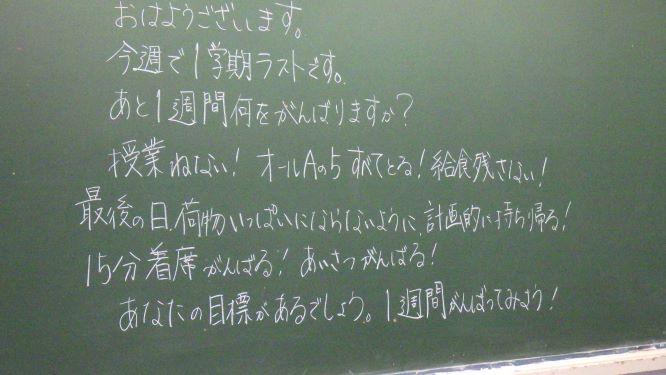 おはようございます。
今週で1学期ラストです。
あと1週間何をがんばりますか?
授業ねない! オールAの5すべてとる! 給食残さない!
最後の日、荷物いっぱいにならないように、計画的に持ち帰る!
15分着席がんばる! あいさつがんばる!
あなたの目標があるでしょう。1週間がんばってみよう!